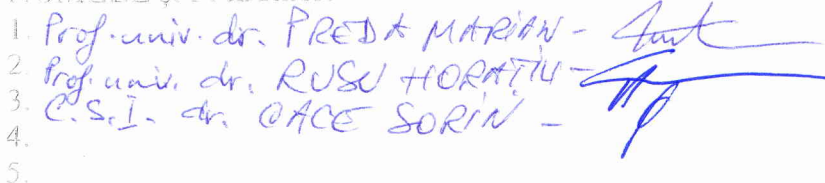 1. Prof. univ. dr. PREDA MARIAN -
2. Prof. univ. dr. RUSU HORAŢIU -
3. C.S.I. dr. CACE SORIN -
4.
5.